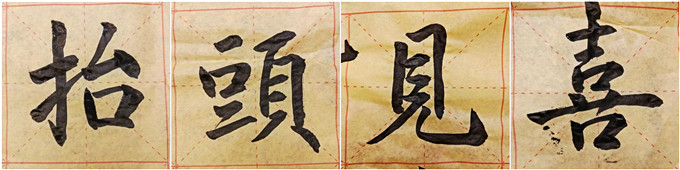 抬頭見喜